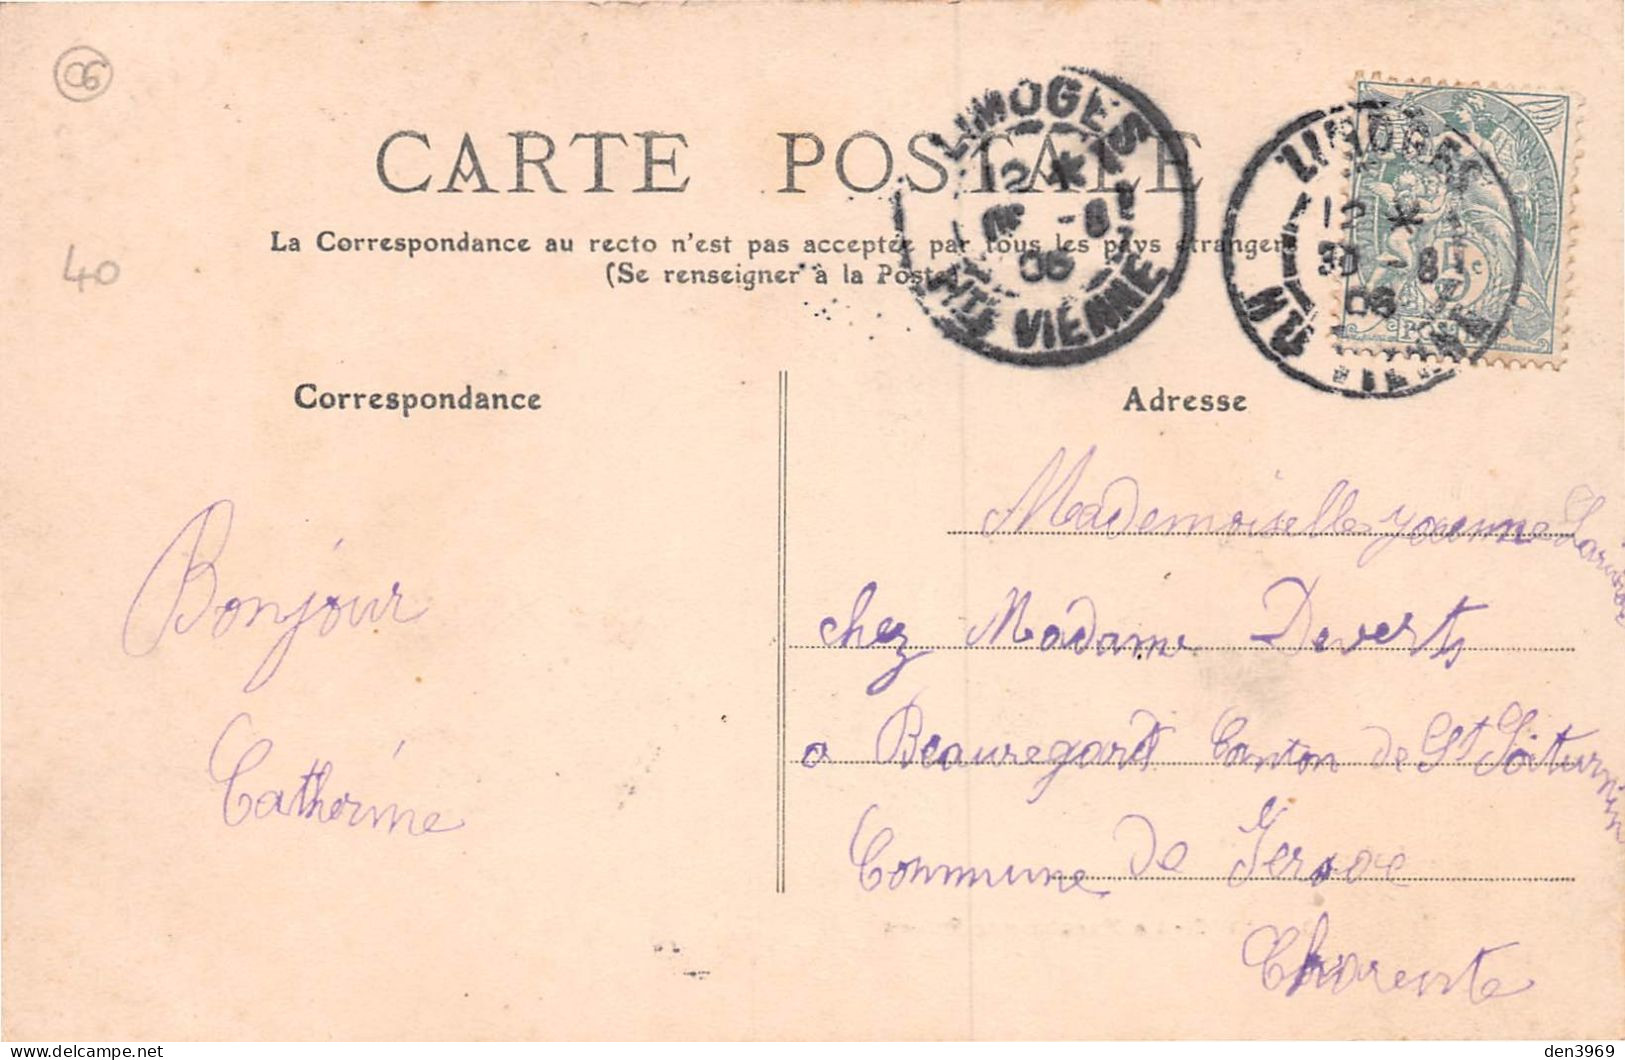 06
CARTE POSTALE
LIMOGES
12 *
30 -8
06
HTE VIENNE
LIMOGES
12 *
30 -8
06
HTE VIENNE
La Correspondance au recto n'est pas acceptée par tous les pays étrangers
(Se renseigner à la Poste)
40
5c
POSTES
Correspondance
Adresse
Bonjour
Catherine
Mademoiselle yoeunne
chez Madame Deverts
a Beauregard Canton de St Soiturnin
Commune de
Charente
den3969